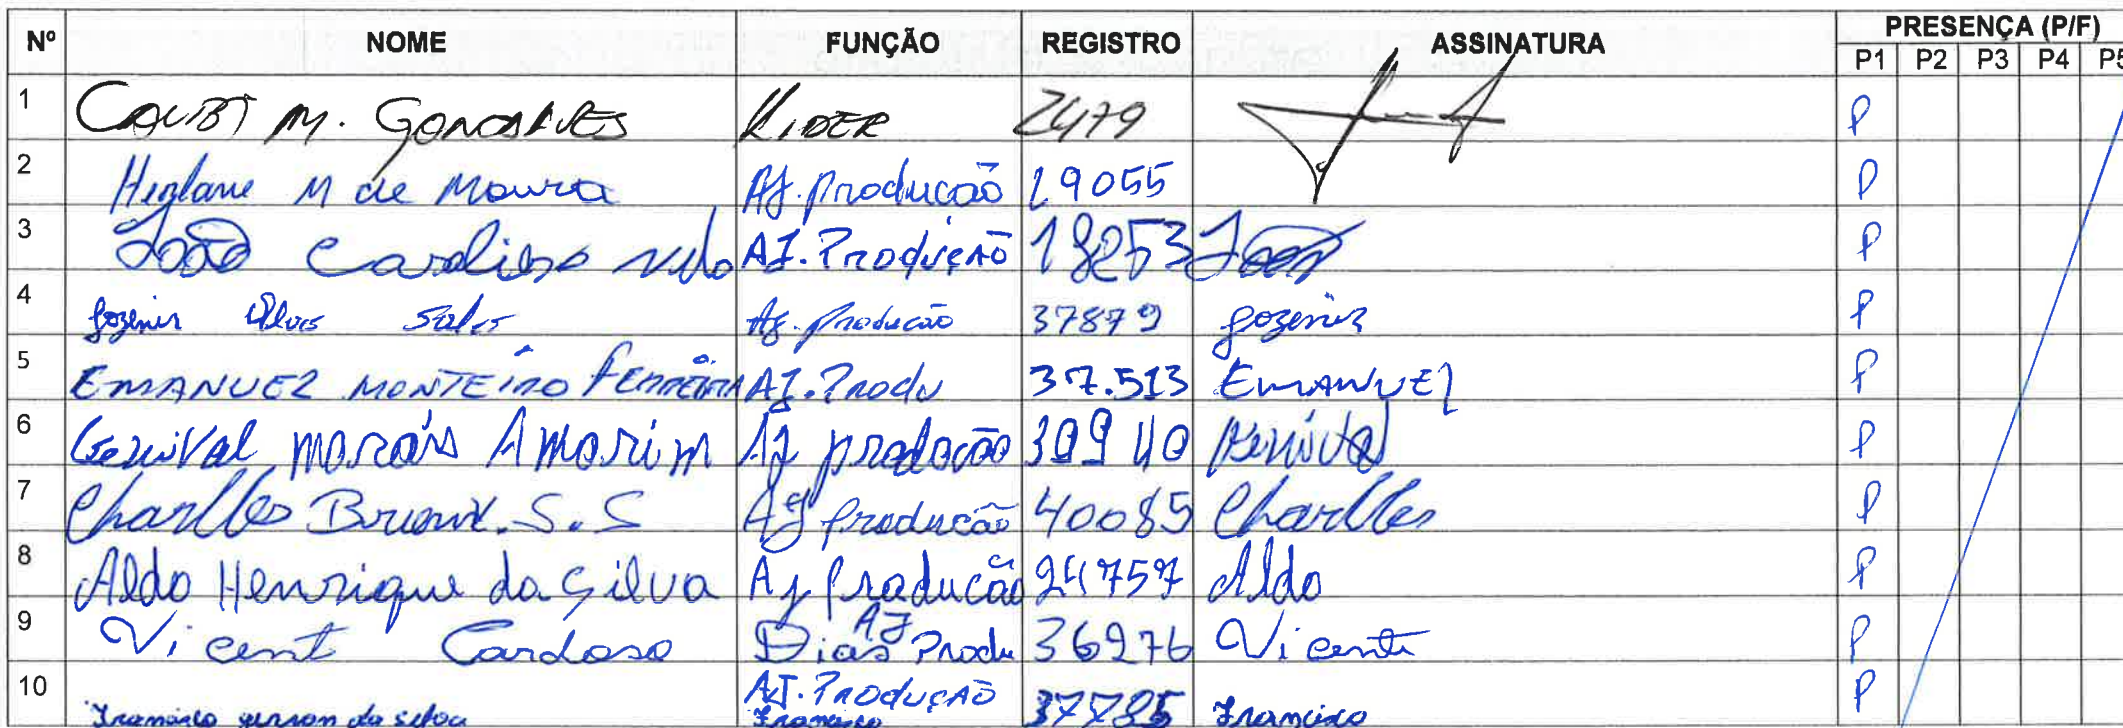 Nº NOME FUNÇÃO REGISTRO ASSINATURA PRESENÇA (P/F)
P1 P2 P3 P4 P5
1 M. GONCALVES LIDER 2479 P
2 M de Moura Aj. Producão 19055 P
3 João Cardoso AJ. PRODUÇÃO 18253 João P
4 Jozenir Alves Sales Aj. Producão 37879 Jozenir P
5 EMANUEL MONTEIRO FERREIRA AJ. Produ 37.513 EMANUEL P
6 Genival morais Amorim Aj producão 39940 Genival P
7 Charlles S.S Aj Producão 40085 Charlles P
8 Aldo Henrique da Silva Aj Producão 24757 Aldo P
9 Vicent Cardoso Dias AJ Produ 36276 Vicente P
10 Francisco gerson da silva AJ. PRODUÇÃO Francisco 37785 Francisco P